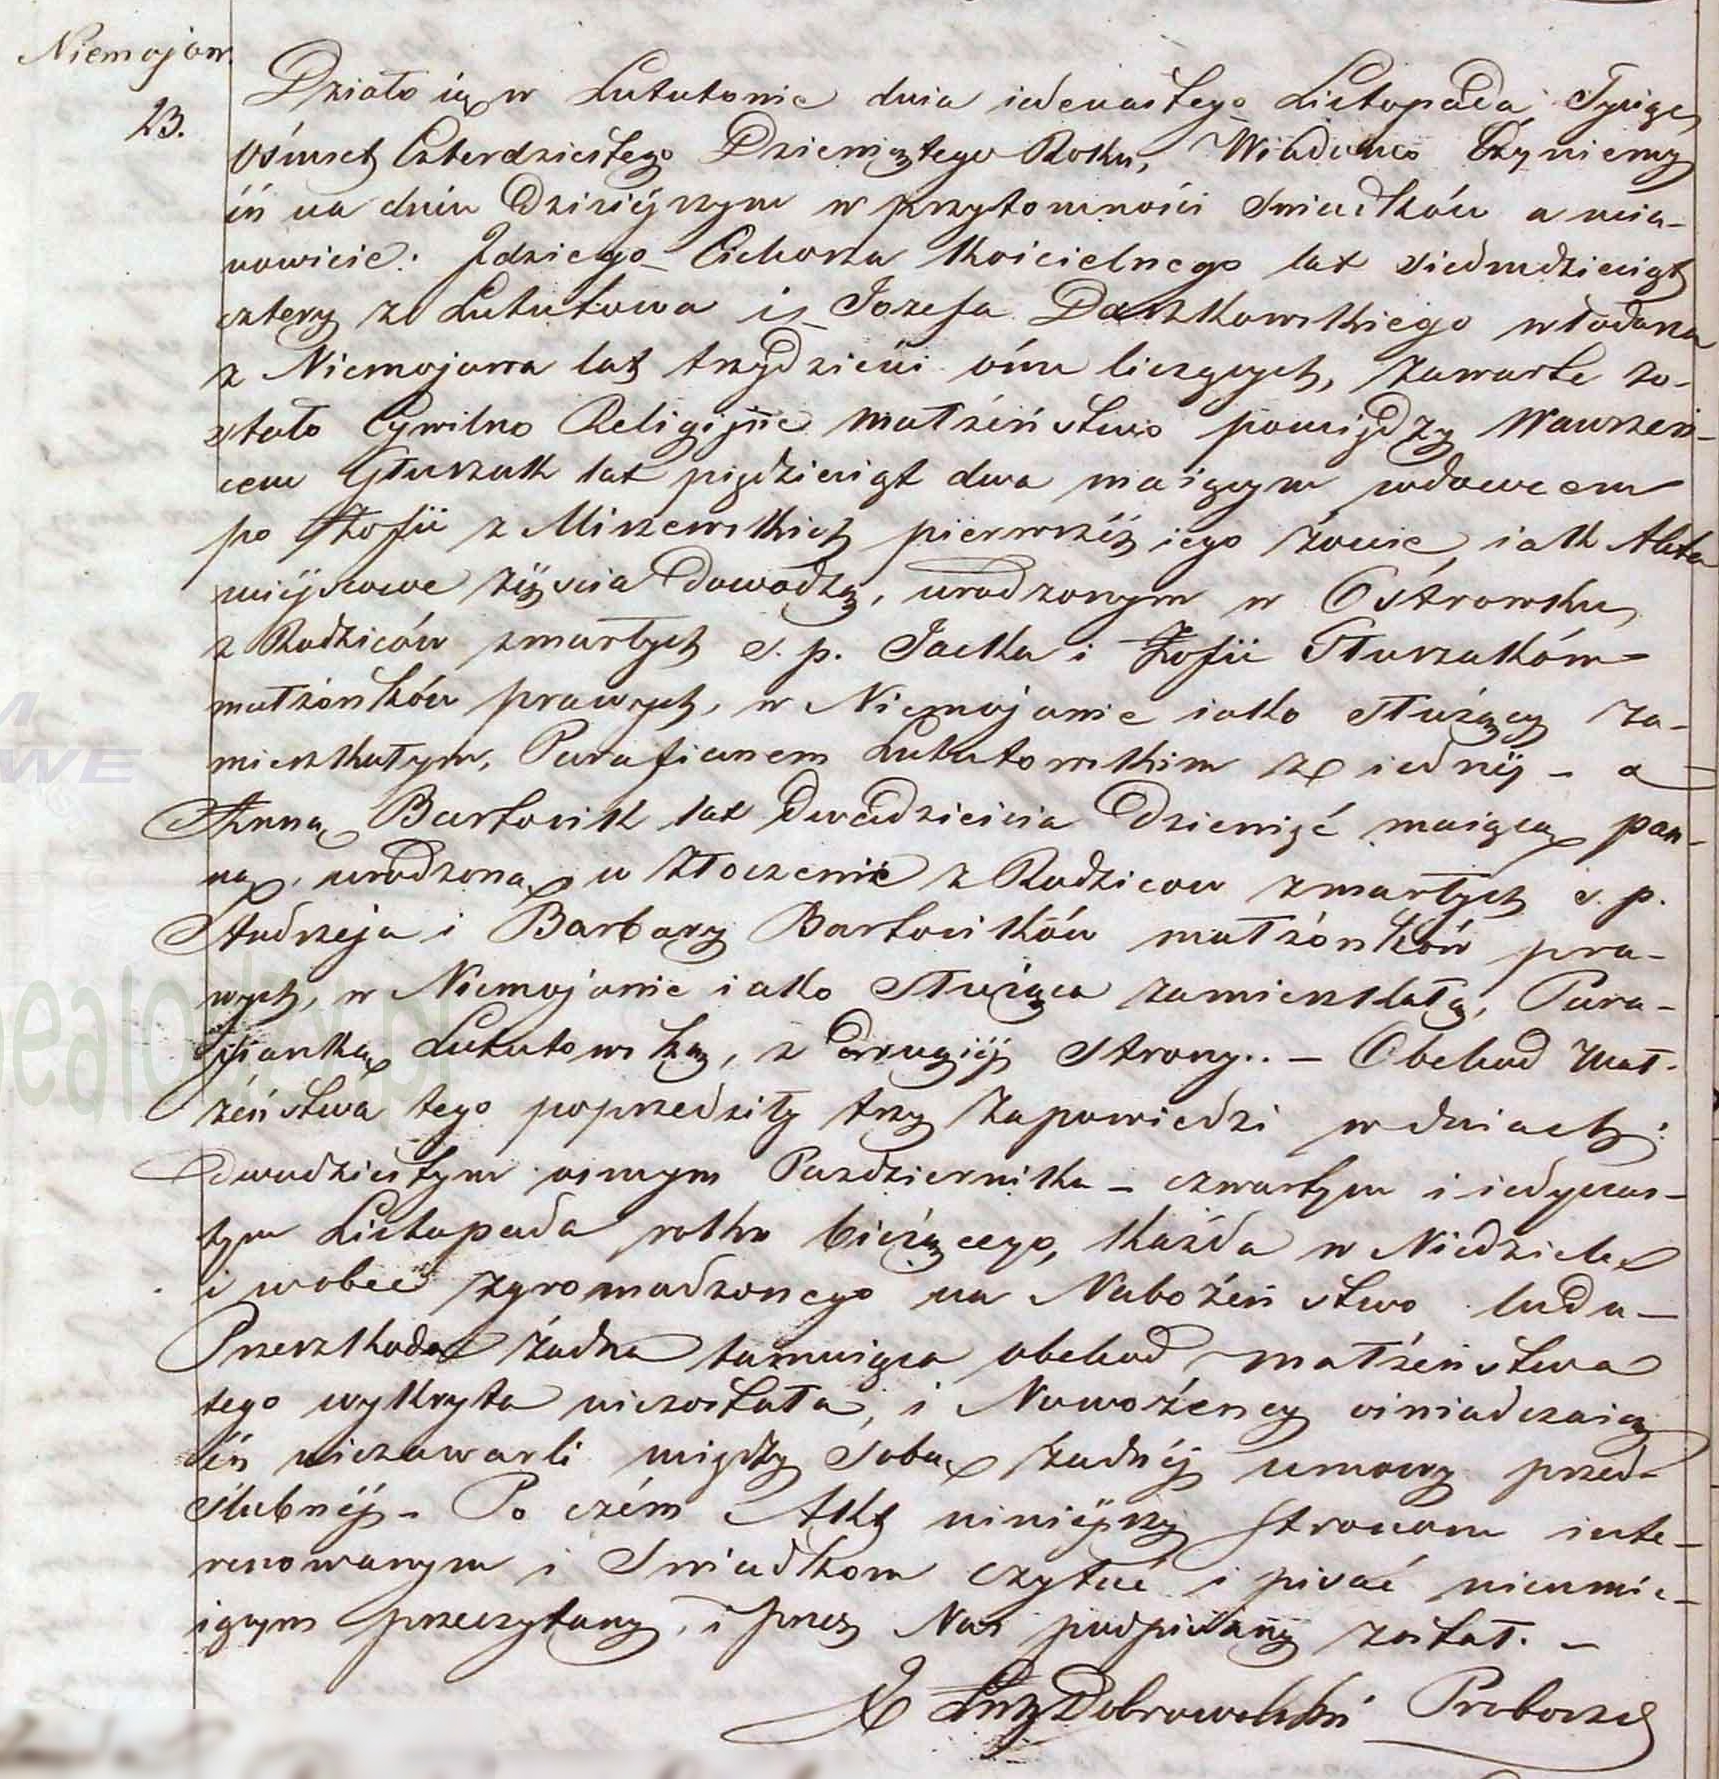 Niemojów.
23.
Działo się w Lututowie dnia iedenastego Listopada Tysiąc
Ośmset Czterdziestego Dziewiątego Roku, Wiadomo Czyniemy
iż na dniu Dzisiéjszym w przytomności Swiadków a mia-
nowicie: Idziego Cichosza Kościelnego lat siedmdziesiąt
cztery z Lututowa i Jozefa Daszkowskiego włodarza
z Niemojowa lat trzydzieści ośm liczących, zawarte zo-
stało Cywilno Religijne małżeństwo pomiędzy Wawrzeń-
cem Głuszak lat pięździesiąt dwa maiącym wdowcem
po Zofii z Miszewskich pierwszéj iego żonie, iak Akta
miéjscowe zéyscia dowodzą, urodzonym w Ostrowku
z Rodziców zmarłych s. p. Jacka i Zofii Głuszaków
małżonków prawych, w Niemojowie iako służący za-
mieszkałym, Parafianem Lututowskim z iednéj - a
Anną Bartosik lat Dwadzieścia Dziewięć maiącą pan-
ną, urodzoną w Złoczewie z Rodzicow zmarłych s. p.
Andrzeja i Barbary Bartosików małżonków pra-
wych, w Niemojowie iako służąca zamieszkałą, Para-
fianką Lututowską, z drugiéj strony.. - Obchod Mał-
żeństwa tego poprzedziły trzy zapowiedzi w dniach:
dwudziestym osmym Pazdziernika - czwartym i iedynas-
tym Listopada roku bieżącego, każda w Niedziele
i wobec zgromadzonego na Nabożeństwo ludu -
Przeszkoda żadna tamuiąca obchod małżeństwa
tego wykryta niezostała, i Nowożency oświadczaią
iż niezawarli między sobą żadnéj umowy przed-
slubnéj - Po czém Akt niniéjszy stronom inte-
resowanym i Swiadkom czytać i pisać nieumie-
iącym przeczytany, i przez Nas podpisany został. -
X Dobrowolski Proboszcz